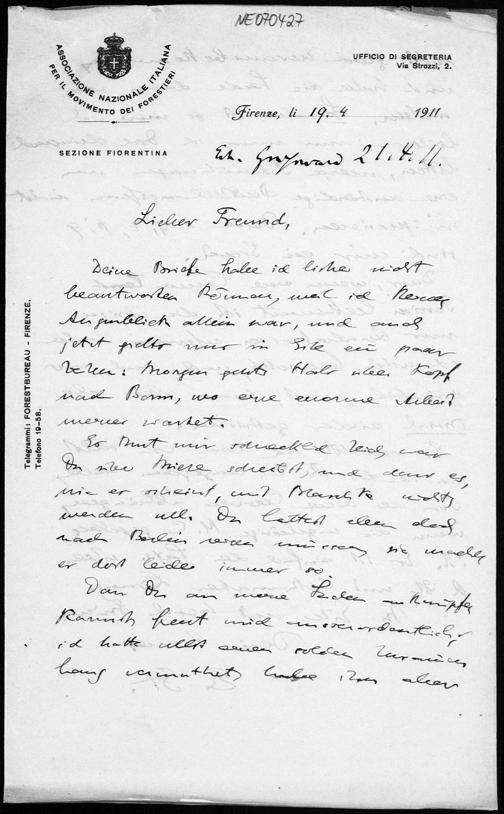 NE070427
ASSOCIAZIONE NAZIONALE ITALIANA
PER IL MOVIMENTO DEI FORESTIERI
SEZIONE FIORENTINA
UFFICIO DI SEGRETERIA
Via Strozzi, 2.
Firenze, li 19. 4 1911
21.4.11.
Lieber Freund,
Deine Briefe habe ich bisher nicht
beantworten können, weil ich keinen
Augenblick allein war, und auch
jetzt giebts nur in Eile ein paar
Zeilen: Morgen gehts Hals über Kopf
nach Bonn, wo eine enorme Arbeit
meiner wartet.
Es thut mir schrecklich leid, was
Du über schreibst, und dass es,
wie es scheint, mit nichts
werden will. Du hättest eben doch
nach Berlin reisen müssen, sie machen
es dort leider immer so.
Dass Du an meine Sachen anknüpfen
kannst freut mich ausserordentlich,
ich hatte selbst einen solchen Zusammen
hang vermuthet, habe ihn aber
Telegrammi: FORESTBUREAU - FIRENZE.
Telefono 19-58.